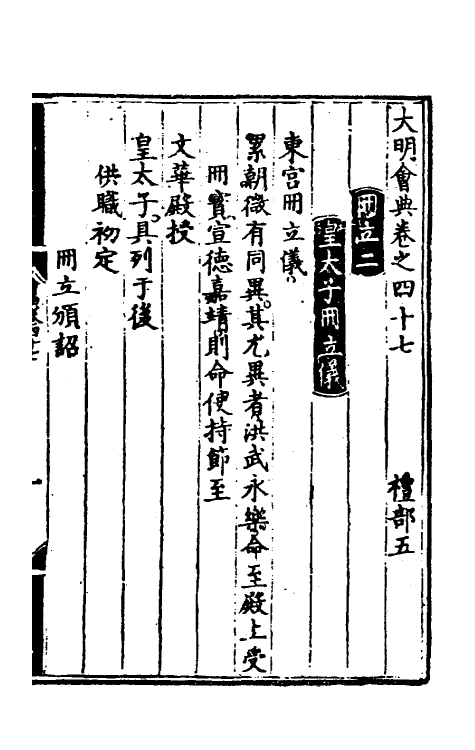 大明會典卷之四十七 禮部五
冊立二
皇太子冊立儀
東宮冊立儀
累朝微有同異其尤異者洪武永樂命至殿上受
冊寶宣德嘉靖則命使持節至
文華殿授
皇太子具列于後
供職初定
冊立頒詔